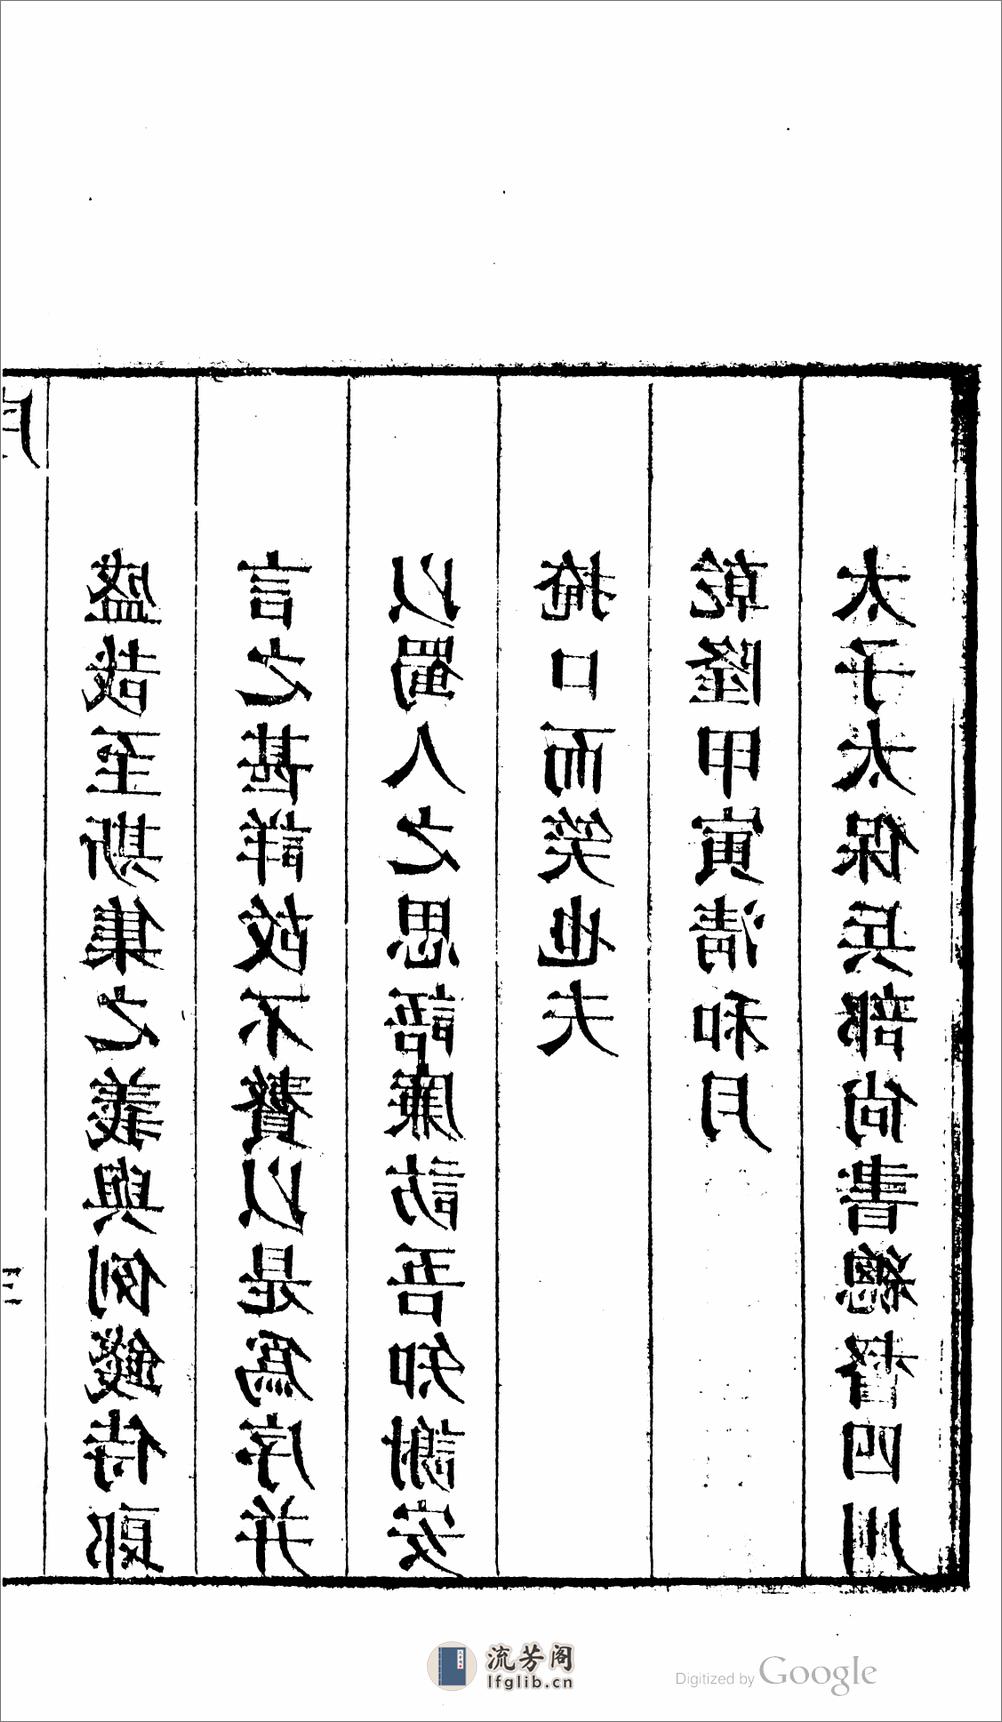 盛哉至斯集之義與例錢侍郎
言之甚詳故不贅以是爲序并
以蜀人之思語廉訪吾知謝安
掩口而笑也夫
乾隆甲寅清和月
太子太保兵部尚書總督四川
流芳阁
lfglib.cn
Digitized by Google